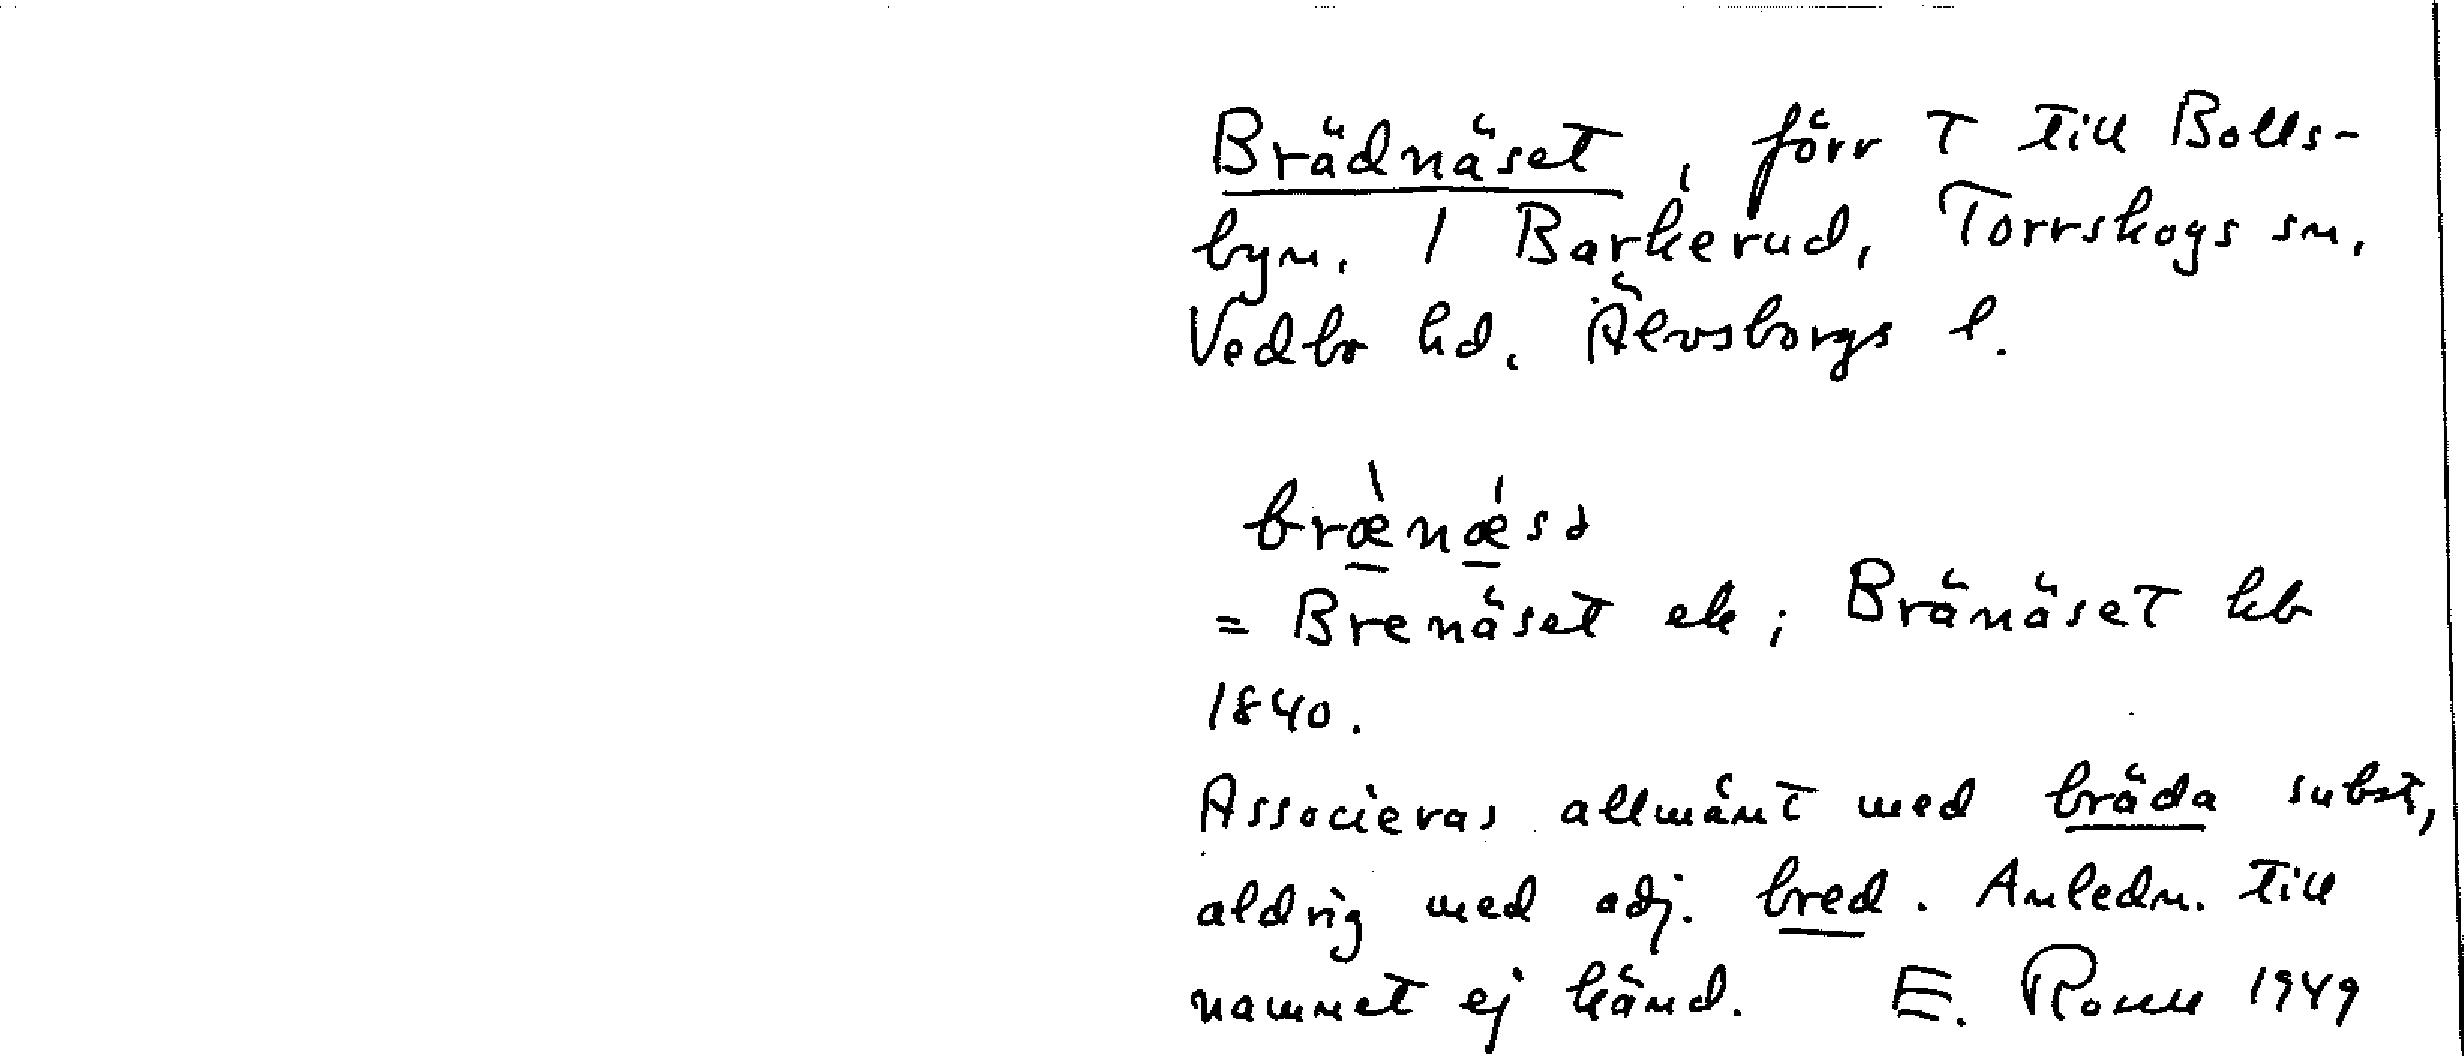 Brädnäset, förr T till Bolls-
byn. 1 Barkerud, Torrskogs sn,
Vedbo hd. Älvsborgs l.
bræ̀nǽsə
= Brenäset ek; Bränäset kb
1840.
Associeras allmänt med bräda subst,
aldrig med adj. bred. Anledn. till
namnet ej känd. E. 1949